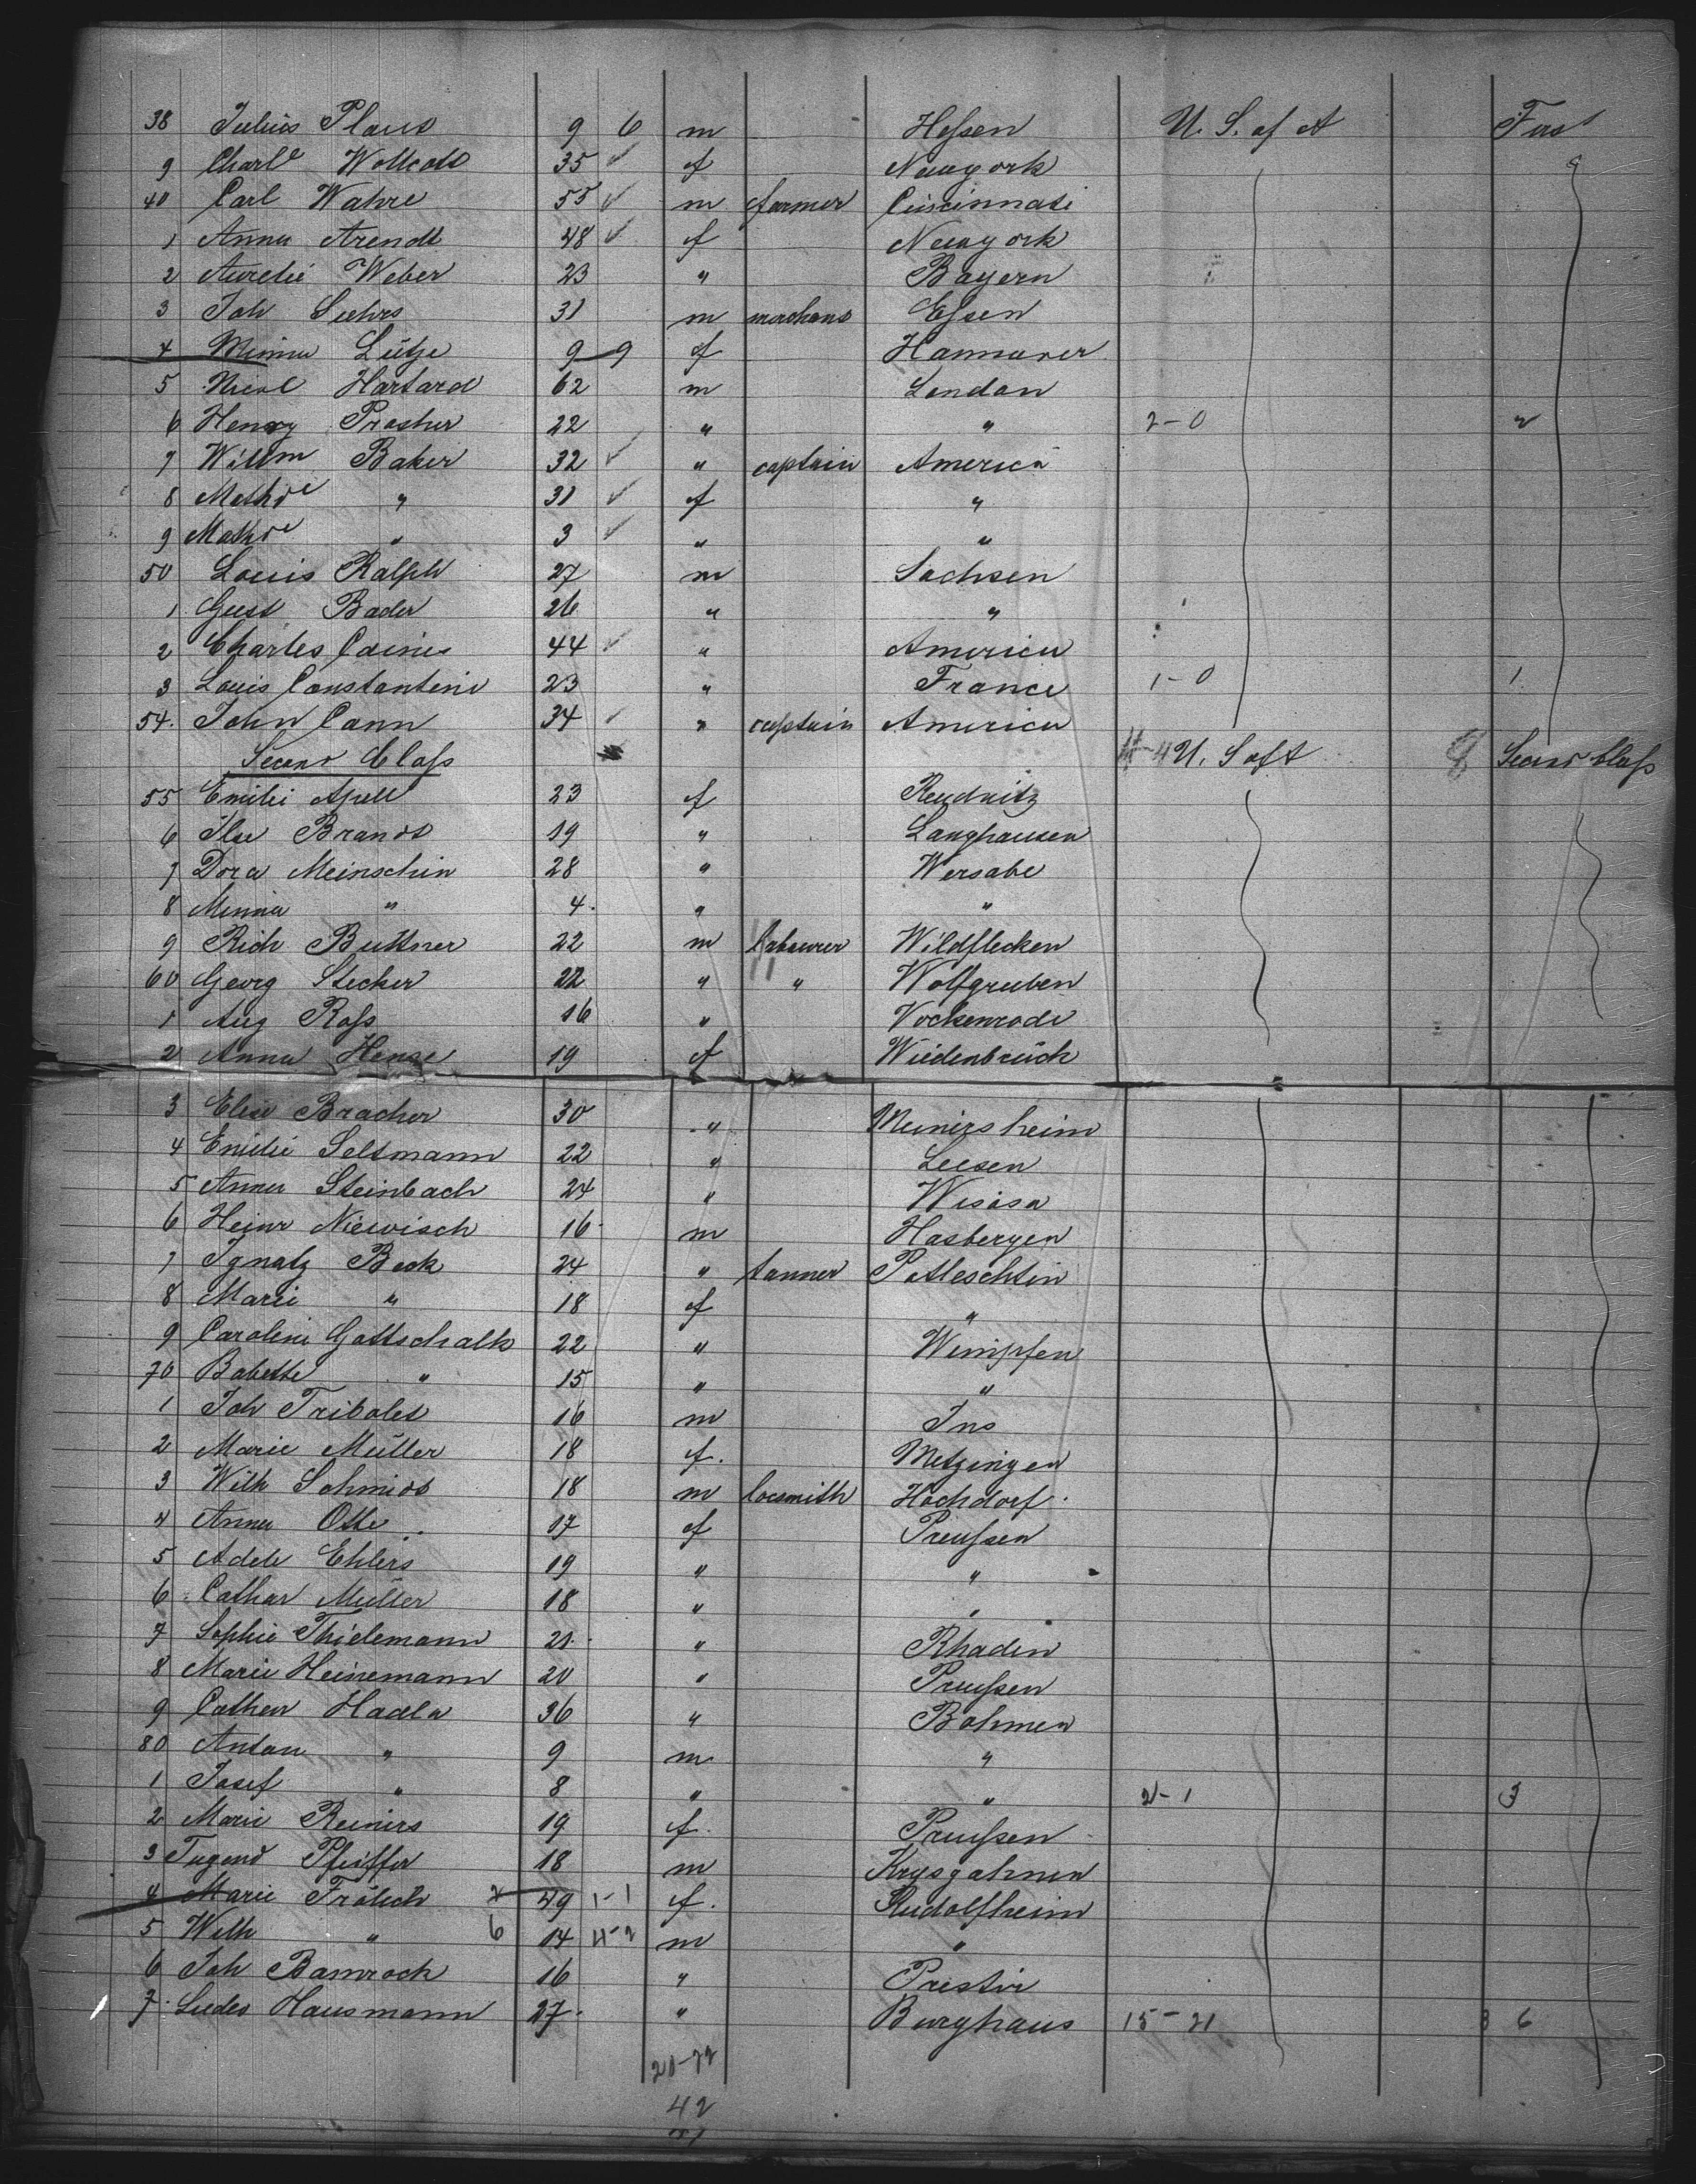 38 Julius Plaus 9 6 m Heſsen U. S. of A First
9 Charle Wollcott 35 ✓ f Newyork
40 Carl Wahre 55 ✓ m farmer Cincinnati
1 Anna Arendt 48 ✓ f Newyork
2 Aurelie Weber 23 " Bayern
3 Joh Suhrs 31 m merchant Eſsen
4 Minna Lütje 9 9 f Hannover
5 Nicol Hartard 62 m London
6 Henry Prosthur 22 " " 2-0
7 Willm Baker 32 ✓ " captain America
8 Mathde " 31 ✓ f "
9 Mathde " 3 ✓ " "
50 Louis Ralph 27 m Sachsen
1 Gust Bader 26 " "
2 Charles Cainis 44 ✓ " America
3 Louis Constantine 23 " France 1-0 1
54. John Cann 34 ✓ " captain America
Second Claſs U. S of A 8 Second Claſs
55 Emilie Apell 23 f Reudnitz
6 Ilse Brandt 19 " Langhausen
7 Dora Meinschin 28 " Wersabe
8 Minna " 4. " "
9 Rich Buttner 22 m labourer Wildflecken
60 Georg Stecker 22 " " Wolfgruben
1 Aug Roſs 16 " Vockenrode
2 Anna Henze 19 f Wiedenbrück
3 Elise Bracher 30 " Meinirsheim
4 Emilie Seltmann 22 " Leesen
5 Anna Steinbach 24 " Wisasa
6 Heinr Niewisch 16 m Hasbergen
7 Ignatz Beck 24 " tanner Potleschtin
8 Marie " 18 f "
9 Caroline Gottschalk 22 " Wimpfen
70 Babette " 15 " "
1 Joh Tribolet 16 m Ins
2 Marie Müller 18 f. Metzingen
3 Wilh Schmidt 18 m locsmith Hochdorf
4 Anna Otte 17 f Preuſsen
5 Adele Ehlers 19 " "
6 Cathar Müller 18 " "
7 Sophie Thielemann 21. " Rhaden
8 Marie Heinemann 20 " Preuſsen
9 Cathar Hadla 36 " Bohmen
80 Anton " 9 m "
1 Josef " 8 " " 2-1 3
2 Marie Reiners 19 f. Preuſsen
3 Tugend Pfeiffer 18 m Krysgahnen
4 Marie Frölich 49 1-1 f. Rudolfheim
5 Wilh " 6 14 4-2 m "
6 Joh Bamrock 16 " Prestir
7. Ludes Hausmann 27. " Burghaus 15-21 6
20-22
42